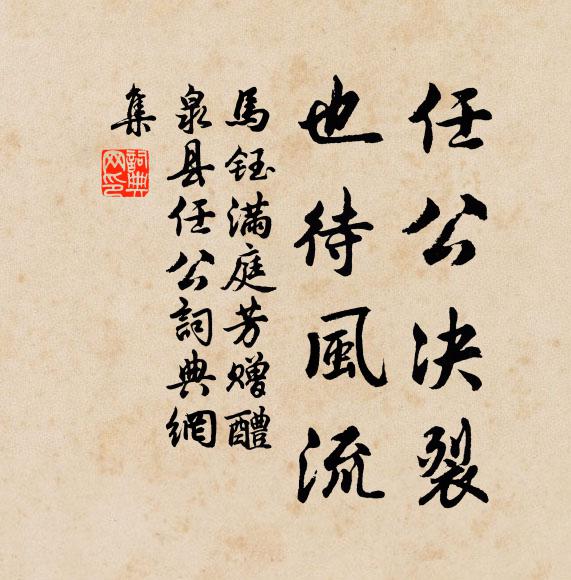 任公决裂
也待風流
馬鈺滿庭芳赠醴
泉县任公詞典網
集
詞典网印